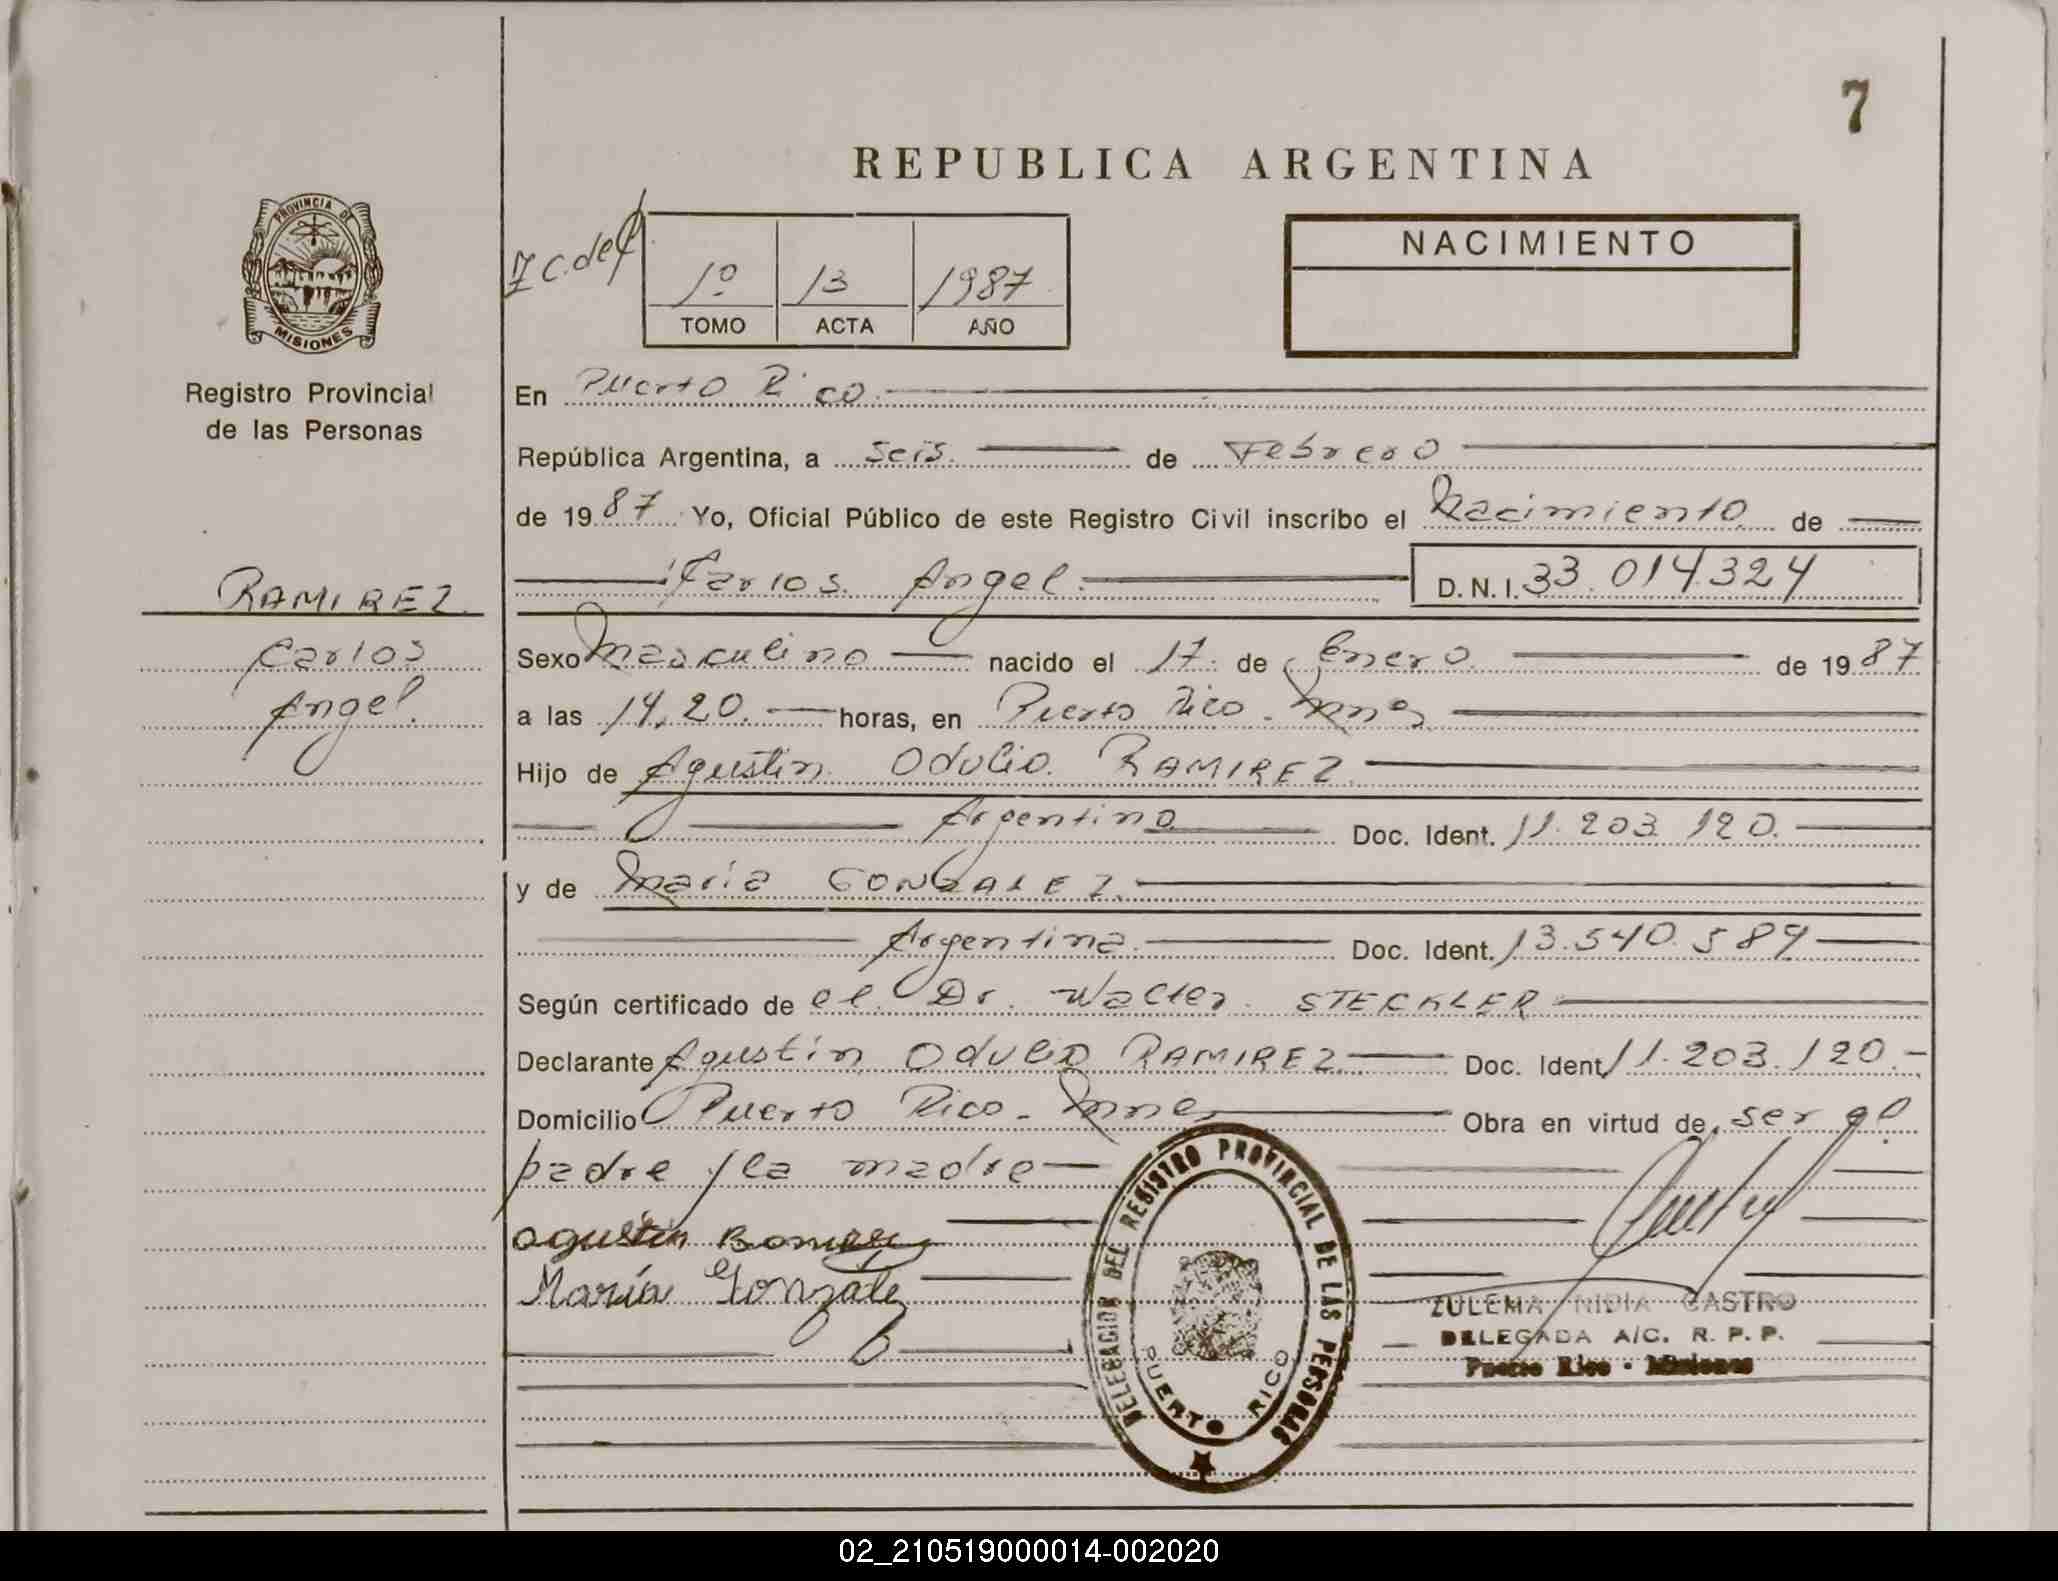 7
REPUBLICA ARGENTINA
PROVINCIA DE
MISIONES
NACIMIENTO
1º 13 1987
TOMO ACTA AÑO
Registro Provincial
de las Personas
En Puerto Rico.
República Argentina, a seis. de Febrero
de 1987 Yo, Oficial Público de este Registro Civil inscribo el Nacimiento de
Carlos Angel. D.N.I. 33.014.324
RAMIREZ
Carlos
Angel.
Sexo Masculino nacido el 17 de Enero de 1987
a las 14,20. horas, en Puerto Rico - Mnes
Hijo de Agustin Odulio RAMIREZ.
Argentino Doc. Ident. 11.203.120.
y de Maria GONZALEZ.
Argentina. Doc. Ident. 13.540.589
Según certificado de el Dr. Walter STECKLER
Declarante Agustin Odulio RAMIREZ Doc. Ident. 11.203.120.
Domicilio Puerto Rico - Mnes Obra en virtud de ser el
padre y la madre
agustin Ramirez
María González
DELEGACION DEL REGISTRO PROVINCIAL DE LAS PERSONAS
PUERTO RICO
ZULEMA NIDIA CASTRO
DELEGADA A/C. R. P. P.
Puerto Rico - Misiones
02_210519000014-002020